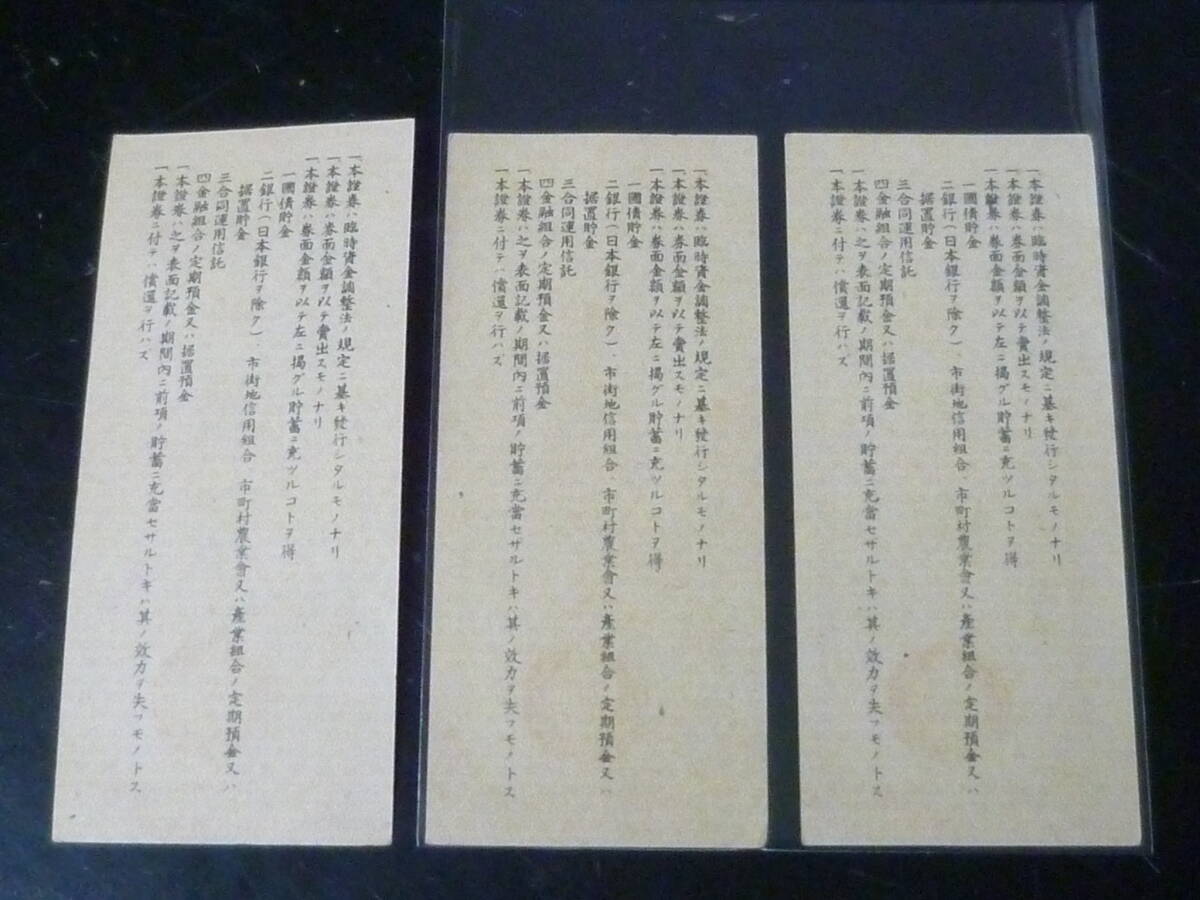 一、本證券ハ臨時資金調整法ノ規定ニ基キ發行シタルモノナリ
一、本證券ハ券面金額ヲ以テ賣出スモノナリ
一、本證券ハ券面金額ヲ以テ左ニ揭グル貯蓄ニ充ツルコトヲ得
一國債貯金
二銀行(日本銀行ヲ除ク)、市街地信用組合、市町村農業會又ハ產業組合ノ定期預金又ハ
据置貯金
三合同運用信託
四金融組合ノ定期預金又ハ据置預金
一、本證券ハ之ヲ表面記載ノ期間內ニ前項ノ貯蓄ニ充當セザルトキハ其ノ效力ヲ失フモノトス
一、本證券ニ付テハ償還ヲ行ハズ
一、本證券ハ臨時資金調整法ノ規定ニ基キ發行シタルモノナリ
一、本證券ハ券面金額ヲ以テ賣出スモノナリ
一、本證券ハ券面金額ヲ以テ左ニ揭グル貯蓄ニ充ツルコトヲ得
一國債貯金
二銀行(日本銀行ヲ除ク)、市街地信用組合、市町村農業會又ハ產業組合ノ定期預金又ハ
据置貯金
三合同運用信託
四金融組合ノ定期預金又ハ据置預金
一、本證券ハ之ヲ表面記載ノ期間內ニ前項ノ貯蓄ニ充當セザルトキハ其ノ效力ヲ失フモノトス
一、本證券ニ付テハ償還ヲ行ハズ
一、本證券ハ臨時資金調整法ノ規定ニ基キ發行シタルモノナリ
一、本證券ハ券面金額ヲ以テ賣出スモノナリ
一、本證券ハ券面金額ヲ以テ左ニ揭グル貯蓄ニ充ツルコトヲ得
一國債貯金
二銀行(日本銀行ヲ除ク)、市街地信用組合、市町村農業會又ハ產業組合ノ定期預金又ハ
据置貯金
三合同運用信託
四金融組合ノ定期預金又ハ据置預金
一、本證券ハ之ヲ表面記載ノ期間內ニ前項ノ貯蓄ニ充當セザルトキハ其ノ效力ヲ失フモノトス
一、本證券ニ付テハ償還ヲ行ハズ